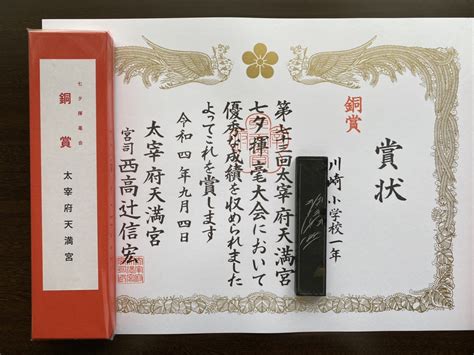 賞状
銅賞
川崎小学校一年
第七十三回太宰府天満宮
七夕揮毫大会において
優秀な成績を収められました
よってこれを賞します
令和四年九月四日
太宰府天満宮
宮司 西高辻信宏
七夕揮毫会
銅賞
太宰府天満宮